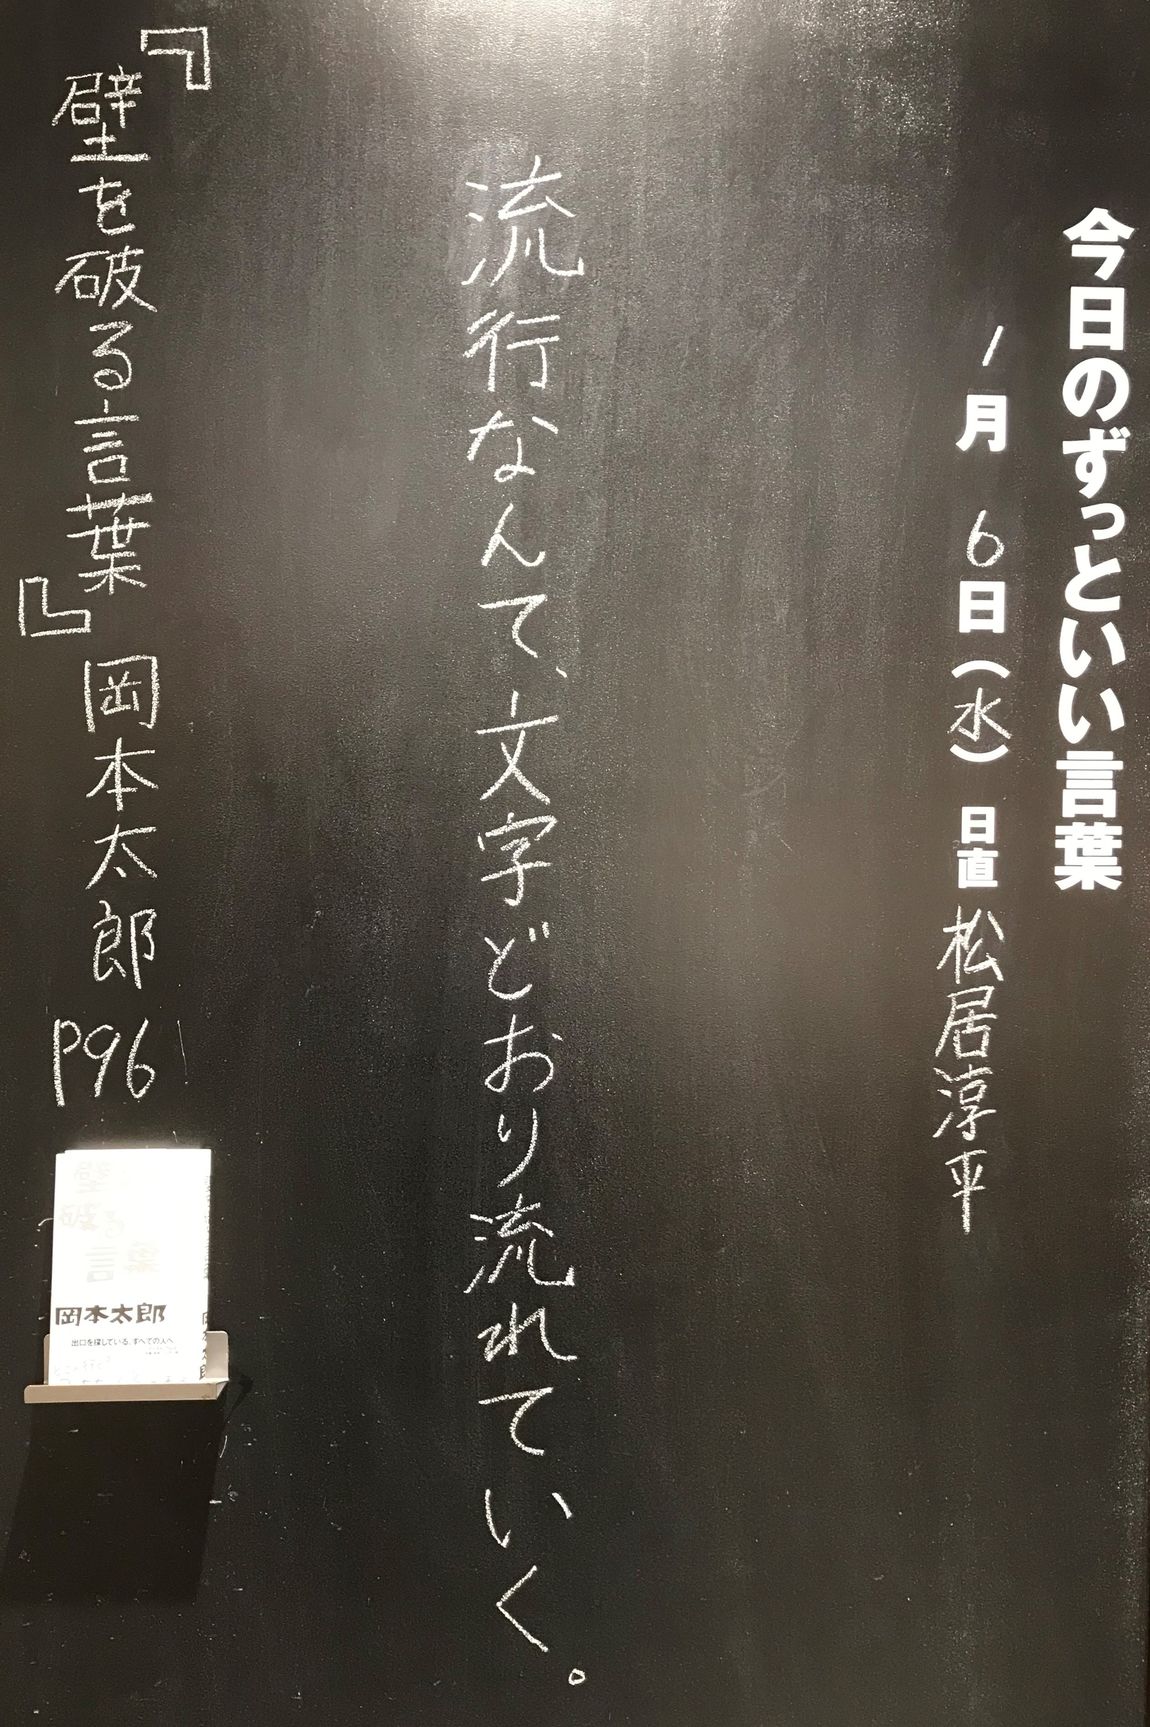 今日のずっといい言葉
1月6日(水) 日直 松居淳平
流行なんて、文字どおり流れていく。
『壁を破る言葉』岡本太郎 P96
壁を
破る
言葉
岡本太郎
出口を探している、すべての人へ。